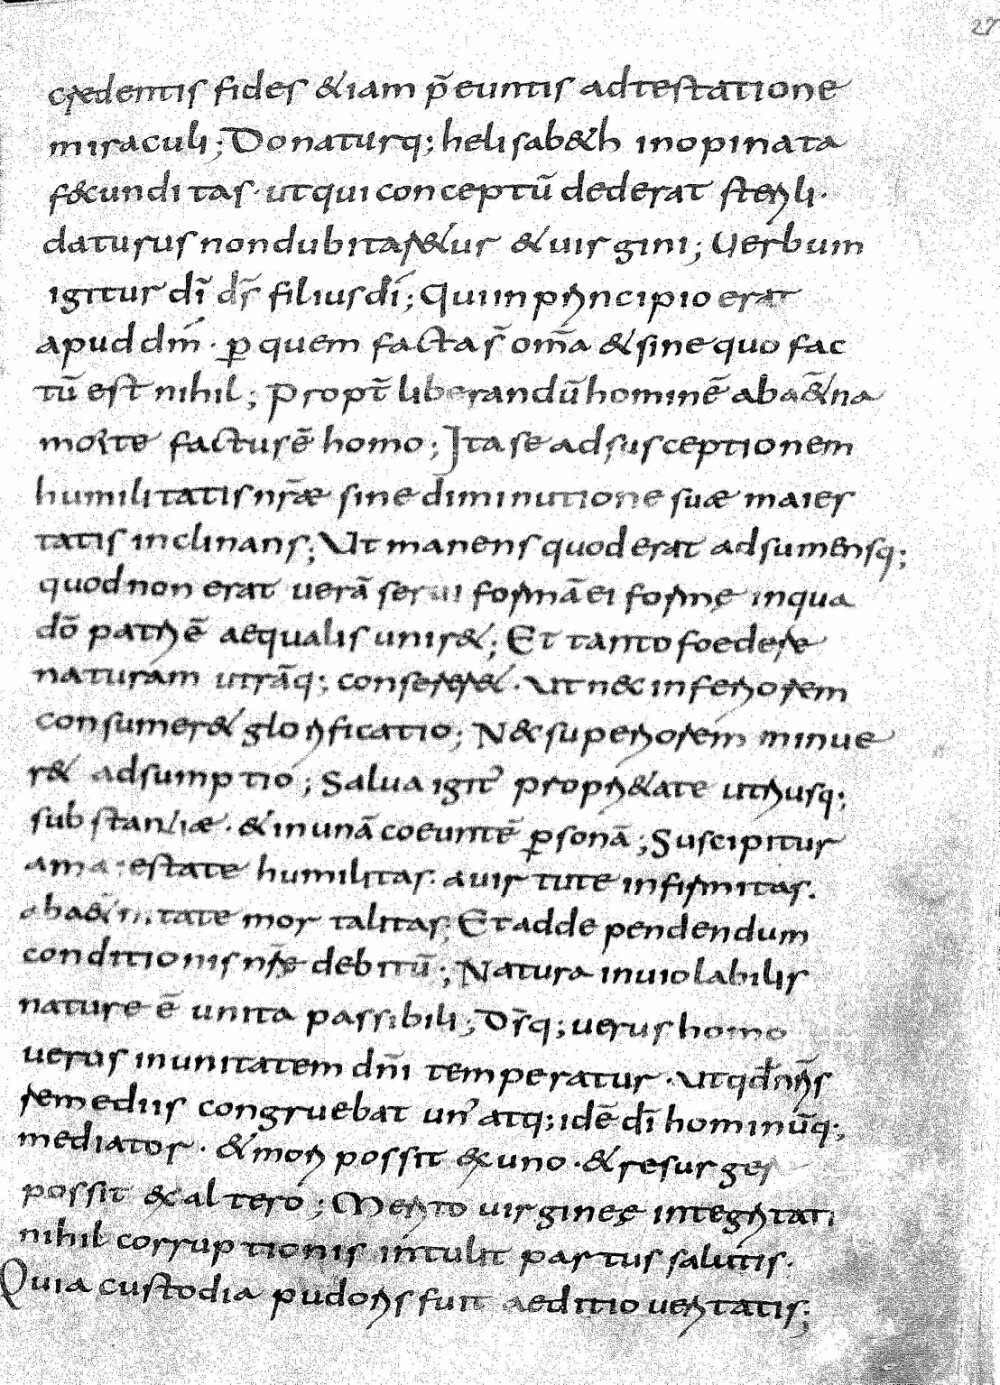 27
credentis fides &iam p̄ euntis adtestatione
miraculi; Donaturq; helisab&h inopinata
f&cunditas· ut qui conceptū dederat sterili·
daturus non dubitar&ur & uirgini; Uerbum
igitur dī ds̄ filius dī; Qui in principio erat
apud dm̄· ꝑ quem facta s̄ om̄a & sine quo fac
tū est nihil; Propt̄ liberandū hominē ab a&̄na
morte factus ē homo; Ita se ad susceptionem
humilitatis nr̄æ sine diminutione suæ maies
tatis inclinans; Ut manens quod erat adsumensq;
quod non erat uerā serui formā ei formę in qua
dō patri ē aequalis unir&; Et tanto foedere
naturam utrāq; conserer&· Ut n&c inferiorem
consumer& glorificatio; N&c superiorem minue
r& adsumptio; Salua igit᾽ propri&ate utriusq;
substantiæ· & in unā coeuntē ꝑsonā; Suscipitur
a maiestate humilitas· a uirtute infirmitas.
ab a&̄rnitate mortalitas; Et ad dependendum
conditionis nr̄ę debitū; Natura inuiolabilis
nature ē unita passibili; Ds̄q; uerus homo
uerus in unitatem dn̄i temperatur· Ut qđ nr̄is
remediis congruebat un᾽ atq; idē dī hominūq;,
mediator· & mori possit ex uno· & resurgere
possit ex altero; Merito uirgineę integritati
nihil corruptionis intulit partus salutis·
Quia custodia pudoris fuit aeditio ueritatis;